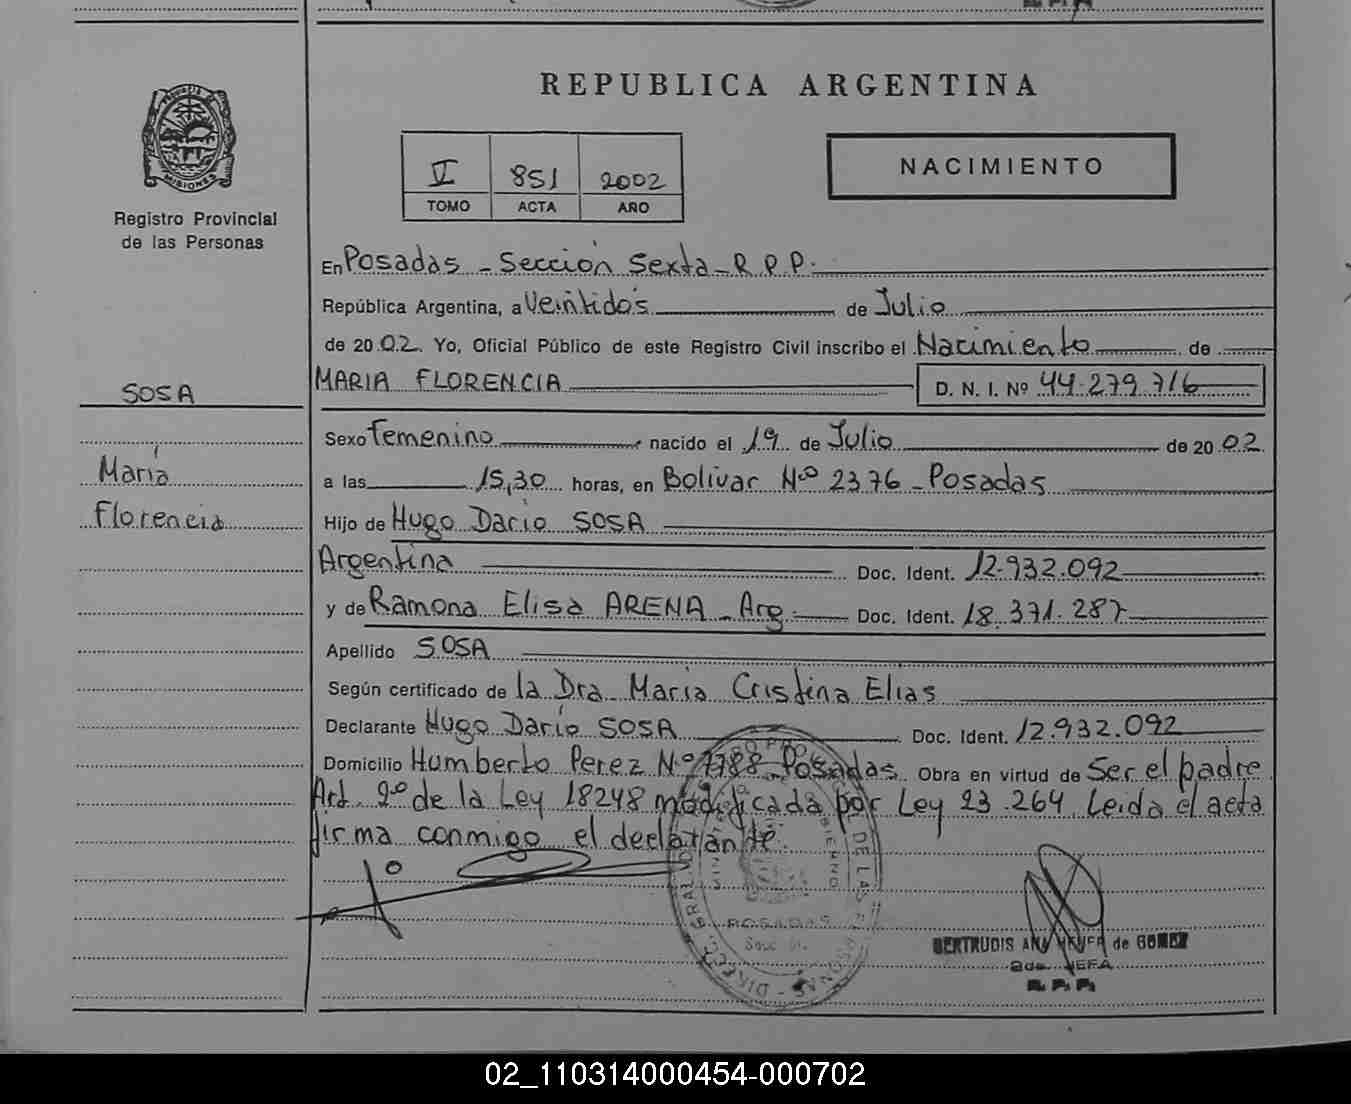 REPUBLICA ARGENTINA
MISIONES
Registro Provincial
de las Personas
V 851 2002
TOMO ACTA AÑO
NACIMIENTO
En Posadas - Sección Sexta - R.P.P.
República Argentina, a Veintidós de Julio
de 2002. Yo, Oficial Público de este Registro Civil inscribo el Nacimiento de
MARIA FLORENCIA D. N. I. Nº 44.279.716
SOSA
María
Florencia
Sexo Femenino nacido el 19 de Julio de 2002
a las 15,30 horas, en Bolívar Nº 2376 - Posadas
Hijo de Hugo Darío SOSA
Argentina Doc. Ident. 12.932.092
y de Ramona Elisa ARENA - Arg. Doc. Ident. 18.371.287
Apellido SOSA
Según certificado de la Dra. María Cristina Elias
Declarante Hugo Darío SOSA Doc. Ident. 12.932.092
Domicilio Humberto Perez Nº 7788 - Posadas Obra en virtud de Ser el padre
Art. 2º de la Ley 18248 modificada por Ley 23.264. Leida el acta
firma conmigo el declarante.
POSADAS
GERTRUDIS ANA de GOMEZ
2da. JEFA
R.P.P.
02_110314000454-000702